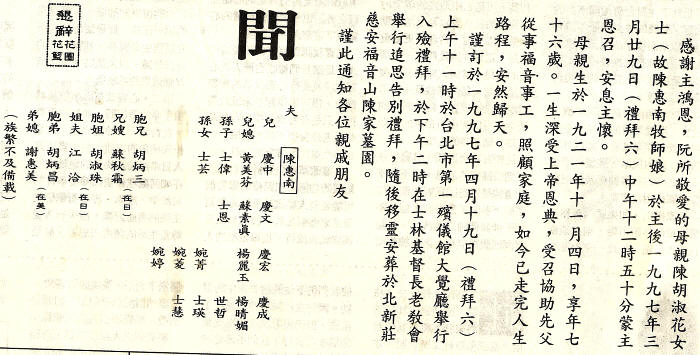 感謝主鴻恩，阮所敬愛的母親陳胡淑花女
士（故陳惠南牧師娘）於主後一九九七年三
月廿九日（禮拜六）中午十二時五十分蒙主
恩召，安息主懷。
母親生於一九二一年十一月四日，享年七
十六歲。一生深受上帝恩典，受召協助先父
從事福音事工，照顧家庭，如今已走完人生
路程，安然歸天。
謹訂於一九九七年四月十九日（禮拜六）
上午十一時於台北市第一殯儀館大覺廳舉行
入殮禮拜，於下午二時在士林基督長老教會
舉行追思告別禮拜，隨後移靈安葬於北新莊
慈安福音山陳家墓園。
謹此通知各位親戚朋友
聞
夫 陳惠南
兒 慶中 慶文 慶宏 慶成
兒媳 黃美芬 蘇素眞 楊麗玉 楊晴媚
孫子 士偉 士恩 世哲
孫女 士芸 婉菁 士瑛
婉菱 士慧
婉婷
胞兄 胡炳三
兄嫂 蘇秋霜（在日）
胞姐 胡淑珠
姐夫 江洽（在日）
胞弟 胡炳昌
弟媳 謝惠美（在美）
（族繁不及備載）
懇辭花圈花籃